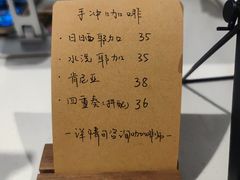 手冲咖啡
· 日晒耶加 35
· 水洗耶加 35
· 肯尼亚 38
· 四重奏(拼配) 36
—详情可咨询咖啡师—